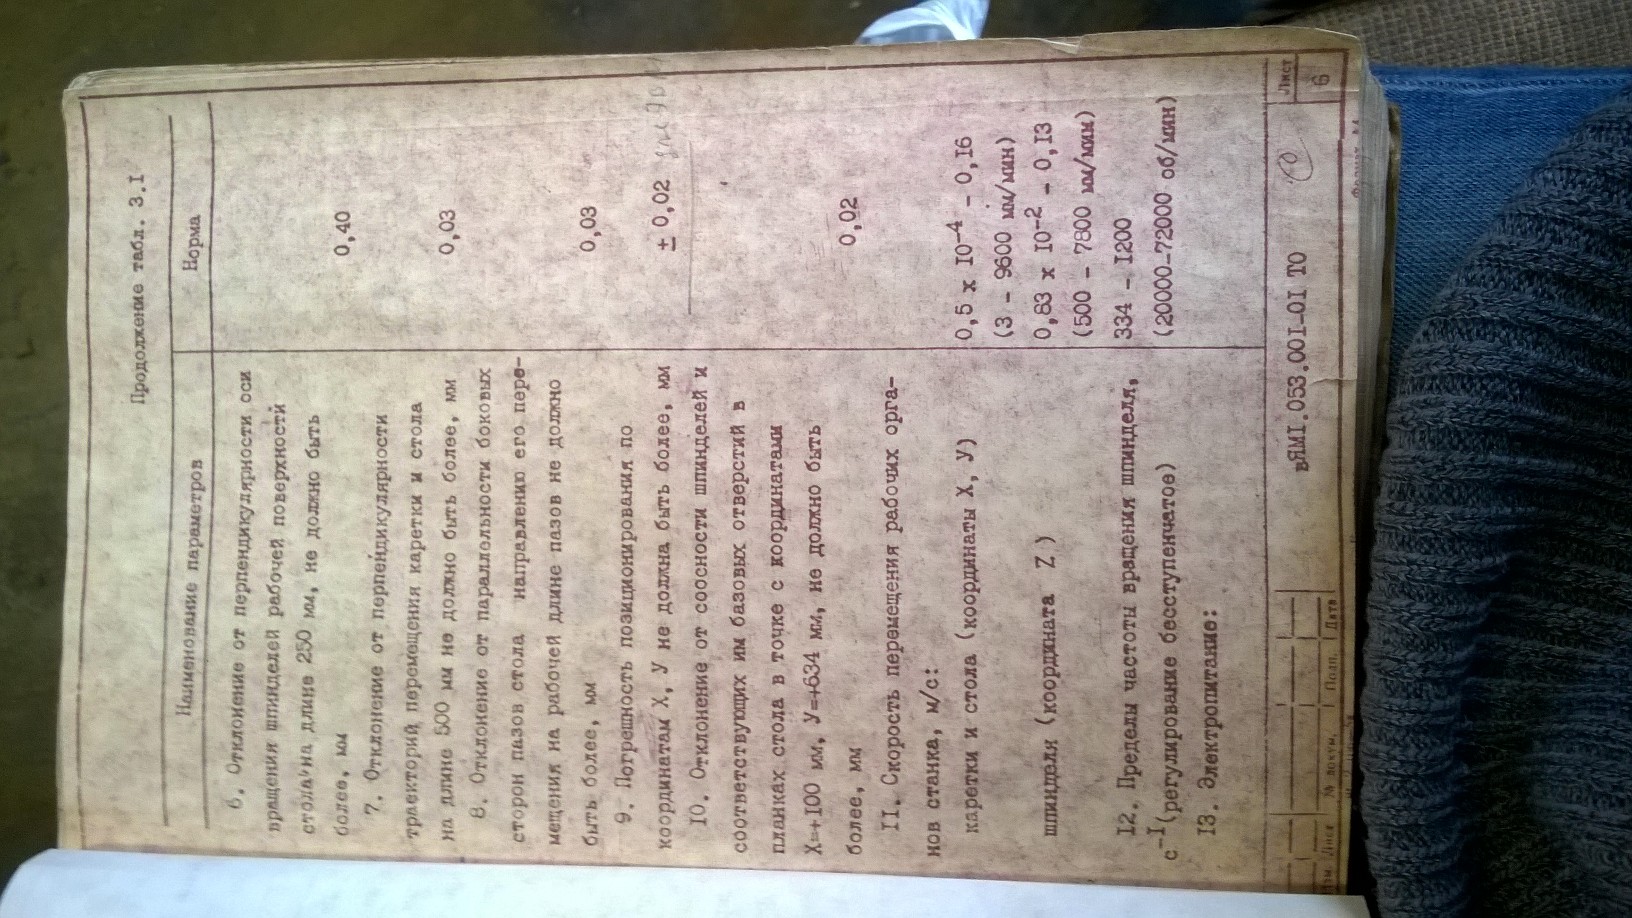 Продолжение табл. 3.I
Наименование параметров
Норма
6. Отклонение от перпендикулярности оси
вращения шпинделей рабочей поверхности
стола на длине 250 мм, не должно быть
более, мм
0,40
7. Отклонение от перпендикулярности
траекторий перемещения каретки и стола
на длине 500 мм не должно быть более, мм
0,03
8. Отклонение от параллельности боковых
сторон пазов стола направлению его пере-
мещения на рабочей длине пазов не должно
быть более, мм
0,03
9. Погрешность позиционирования по
координатам X, У не должна быть более, мм
± 0,02
IO. Отклонение от соосности шпинделей и
соответствующих им базовых отверстий в
планках стола в точке с координатами
X=+I00 мм, У=+634 мм, не должно быть
более, мм
0,02
II. Скорость перемещения рабочих орга-
нов станка, м/с:
каретки и стола (координаты X, У)
0,5 x IO⁻⁴ - 0,I6
(3 - 9600 мм/мин)
шпинделя (координата Z )
0,83 x IO⁻² - 0,I3
(500 - 7800 мм/мин)
I2. Пределы частоты вращения шпинделя,
с⁻ᴵ(регулировани бесступенчатое)
334 - I200
(20000-72000 об/мин)
I3. Электропитание:
Изм. Лист № докум. Подп. Дата
вЯМI.053.00I-0I ТО
Лист
6